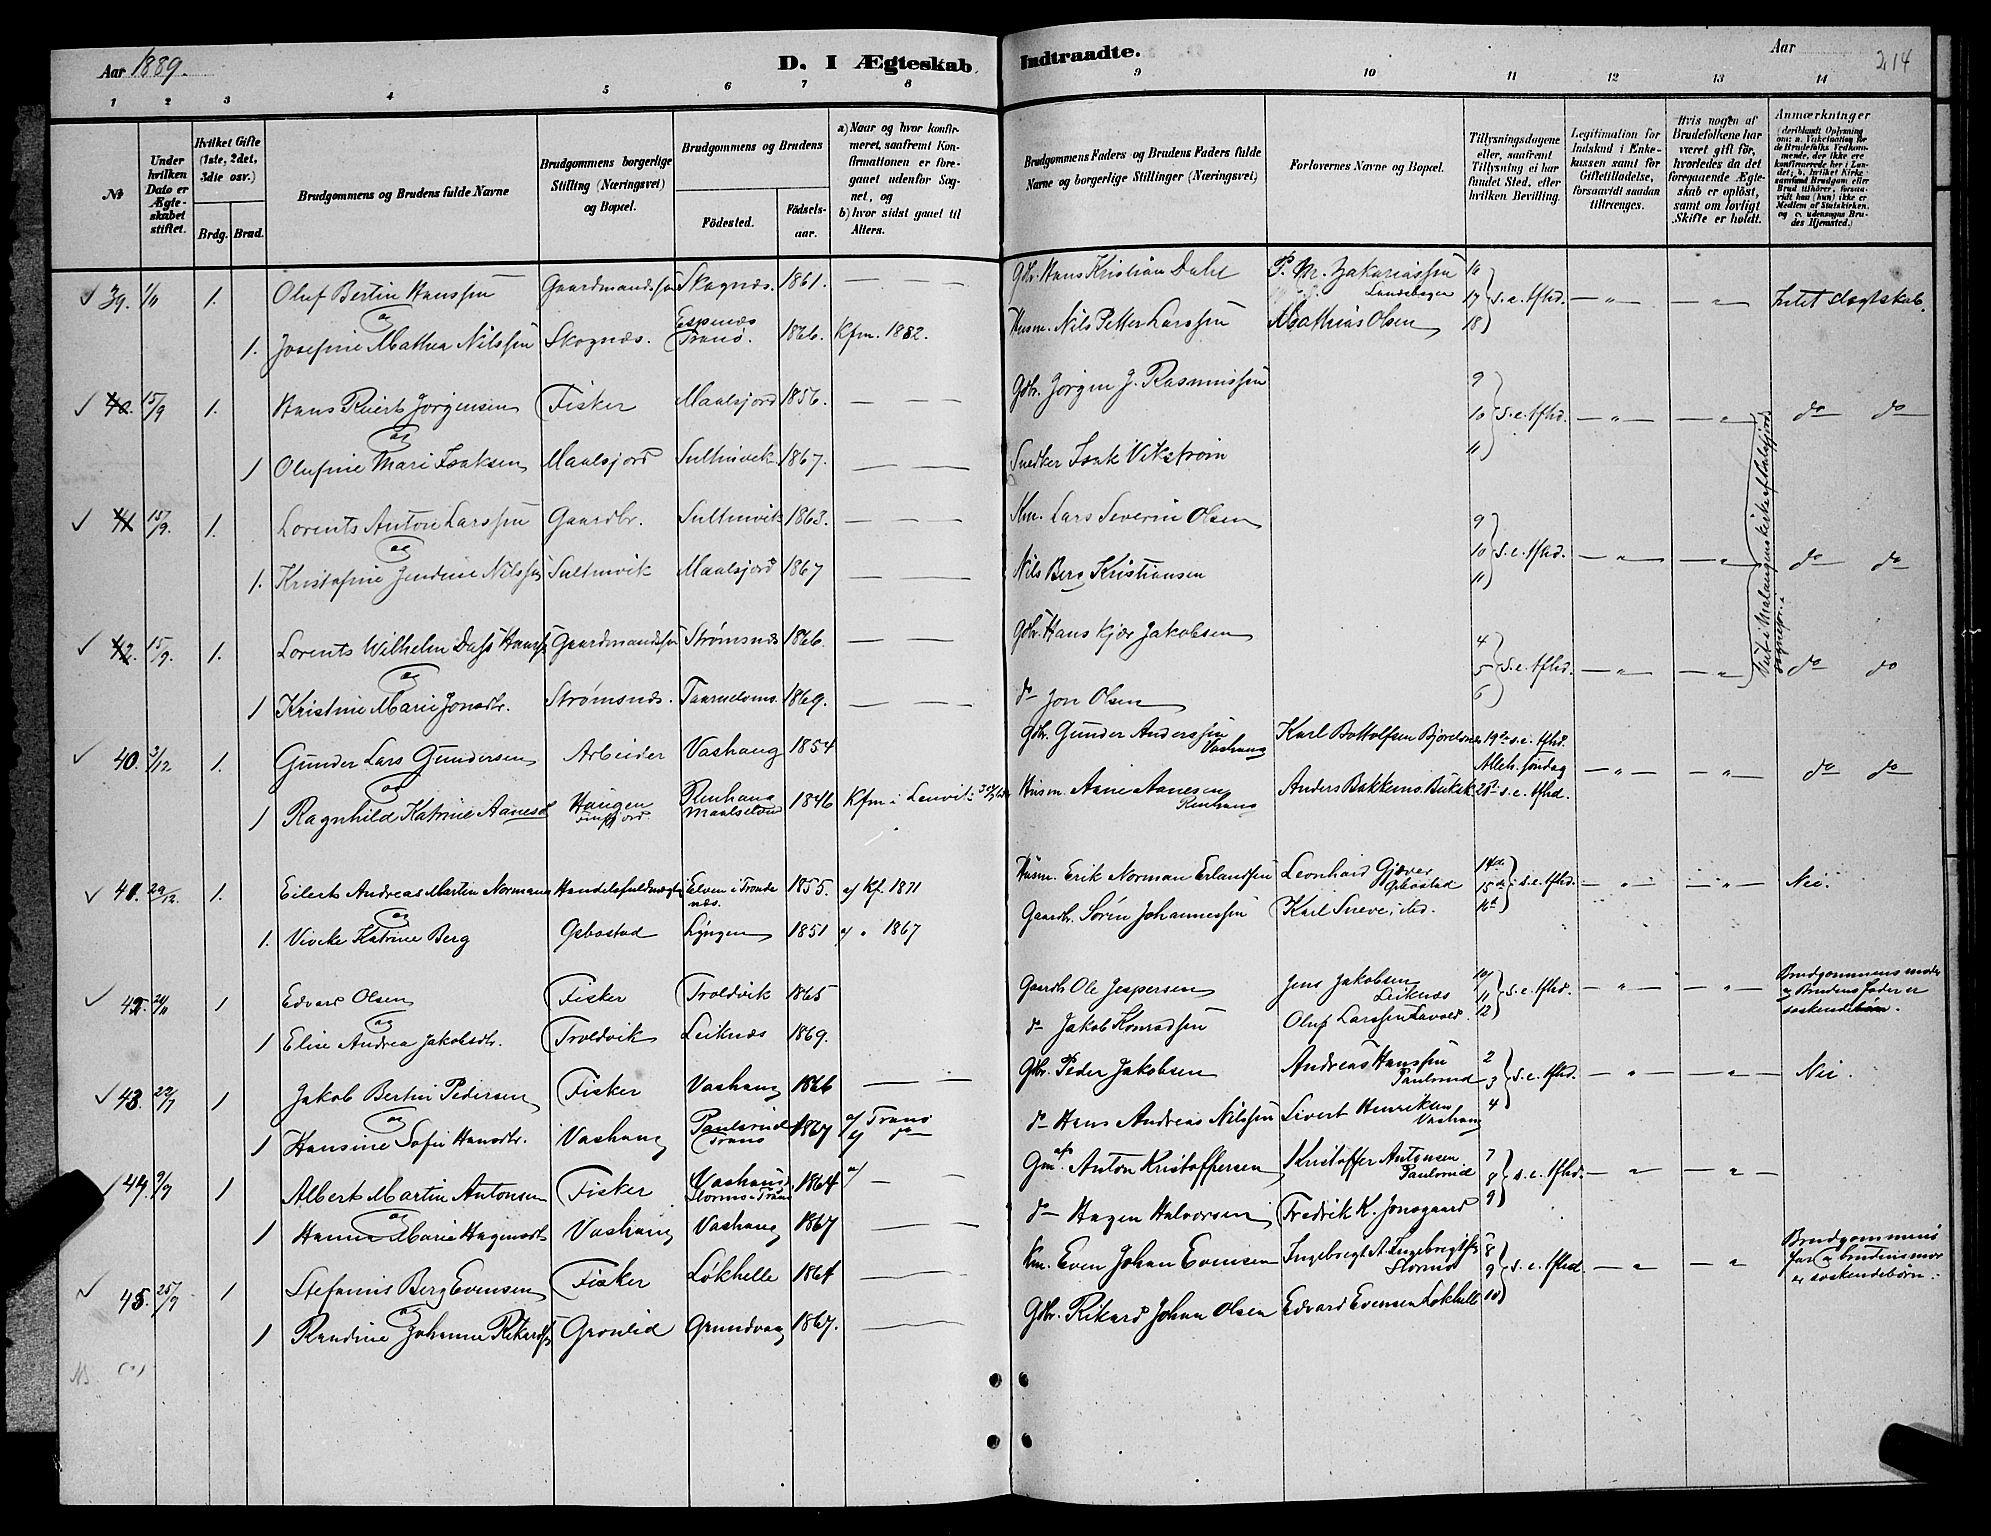 Aar 1889. D. I Ægteskab Indtraadte. Aar 214
1 2 3 4 5 6 7 8 9 10 11 12 13 14
No
Under hvilken Dato er Ægteskabet stiftet.
Hvilket Gifte (1ste, 2det, 3die osv.)
Brdg. Brud.
Brudgommens og Brudens fulde Navne
Brudgommens borgerlige Stilling (Næringsvei) og Bopæl.
Brudgommens og Brudens
Fødested. Fødselsaar.
a) Naar og hvor konfirmeret, saafremt Konfirmationen er foregaaet udenfor Sognet, og
b) hvor sidst gaaet til Alters.
Brudgommens Faders og Brudens Faders fulde Navne og borgerlige Stillinger (Næringsvei)
Forlovernes Navne og Bopæl.
Tillysningsdagene eller, saafremt Tillysning ei har fundet Sted, efter hvilken Bevilling.
Legitimation for Indskud i Enkekassen samt for Giftetilladelse, forsaavidt saadan tiltrænges.
Hvis nogen af Brudefolkene har været gift før, hvorledes da det foregaaende Ægteskab er opløst, samt om lovligt Skifte er holdt.
Anmærkninger
39. 1/11 1. Oluf Bertin Hanssen Gaardmandssøn Skognæs. 1861. — — — Gbr. Hans Kristian Dahl P. M. Zakariassen 16
og Lundebogen 17 s. e. tfhd. — " — — " — Intet slægtskab.
1. Josefine Mathea Nilssen Skognæs. Espenæs Tranø. 1866. Kfm. 1882. Husm. Nils Petter Larssen Mathias Olsen 18
40. 15/9 1. Hans Kiert Jørgensen Fisker Maalsjord 1856. — — — Gbr. Jørgen J. Rasmussen 9
og 10 s. e. tfhd. — " — — " — do do
1 Olufine Mari Isaksen Maalsjord Sultinvik 1867. — — — Snedker Isak Vikstrøm 11
41 15/9. 1. Lorents Anton Larssen Gaardbr. Sultinvik 1863. — — — Km. Lars Severin Olsen 9
og 10 s. e. tfhd. — " — — " — do do
1. Kristofine Jendine Nilssen Sultinvik Maalsjord 1867 — — — Nils Berg Kristiansen 11
42. 15/9. 1. Lorents Wilhelm Dass Hanss. Gaardmandssøn Strømsnæs 1866. — — — Gbr. Hans Kjær Jakobsen 4
og 5 s. e. tfhd. — " — — " — do do
1 Kristine Marie Jonsdtr. Strømsnæs. 1869. — — — do Jon Olsen 6
Viet i Malangens kirke
40. 3/12 1. Gunder Lars Gundersen Arbeider Vashaug 1854 Gbr. Gunder Anderssen Vashaug Karl Bottolfsen 19de s. e. tfhd.
og Alleh. søndag — " — — " — do do
1 Ragnhild Katrine Aanesd. Haugen Renhaug Maalselven 1846 Kfm i Lenvik Husm. Aane Aanesen Renhaug Anders Bakkemo 20de s. e. tfhd.
41. 29/12. 1. Eilert Andreas Martin Normann Handelsfuldmægtig Elven i Trondenæs. 1855. a) Kf. 1871 Husm. Erik Norman Erlandsen Leonhard Gjæver Gibostad 14de
og 15de s. e. tfhd. — " — — " — Nei.
1. Vivike Katrine Berg Gibostad Lyngen 1851 a) " 1867 Gaardbr. Søren Johannessen Karl Sneve, ibd. 16de
42. 24/11 1 Edvard Olsen Fisker Troldvik 1865 Gaardb. Ole Jespersen Jens Jakobsen Leiknæs 10
og 11 s. e. tfhd. — " — — " — Brudgommens moder og Brudens fader er søskendebørn.
1 Elise Andrea Jakobsdtr. Troldvik Leiknæs 1869. do Jakob Konradsen Oluf Larssen Lavold. 12
43. 22/7 1 Jakob Bertin Pedersen Fisker Vashaug 1866 — — — Gbr. Peder Jakobsen Andreas Hanssen Paulsrud 2
og 3 s. e. tfhd. — " — — " — Nei.
1 Hansine Sofie Hansdtr. Vashaug Paulsrud Tranø 1867 a) Tranø b) do do Hans Andreas Nilssen Sivert Henriksen Vashaug 4
44. 9/9 1 Albert Martin Antonsen Fisker Vashaug Stormo i Tranø 1864 a) — — Gm. Anton Kristoffersen Kristoffer Antonsen Paulsrud 7
og 8 s. e. tfhd. — " — — " —
1 Hanna Marie Hagensdtr. Vashaug Vashaug 1867 — — — do Hagen Halvorsen Fredrik K. Jonsgaard 9
45. 25/9 1 Stefanus Berg Evensen Fisker Løkhelle 1864 — — Km. Even Johan Evensen Ingebregt A. Ingebregtss. Stormo 8
og 9 s. e. tfhd. — " — — " — Brudgommens far & brudens mor er søskendebørn.
1 Randine Johanne Rikardsd. Grønlid Grundvaag 1867. — — Gbr. Rikard Johan Olsen Edvard Evensen Løkhelle 10